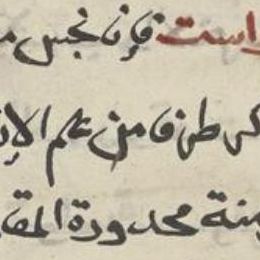 است فإن نجس م
كر طرفا من علم الإ
منة محدودة المقا